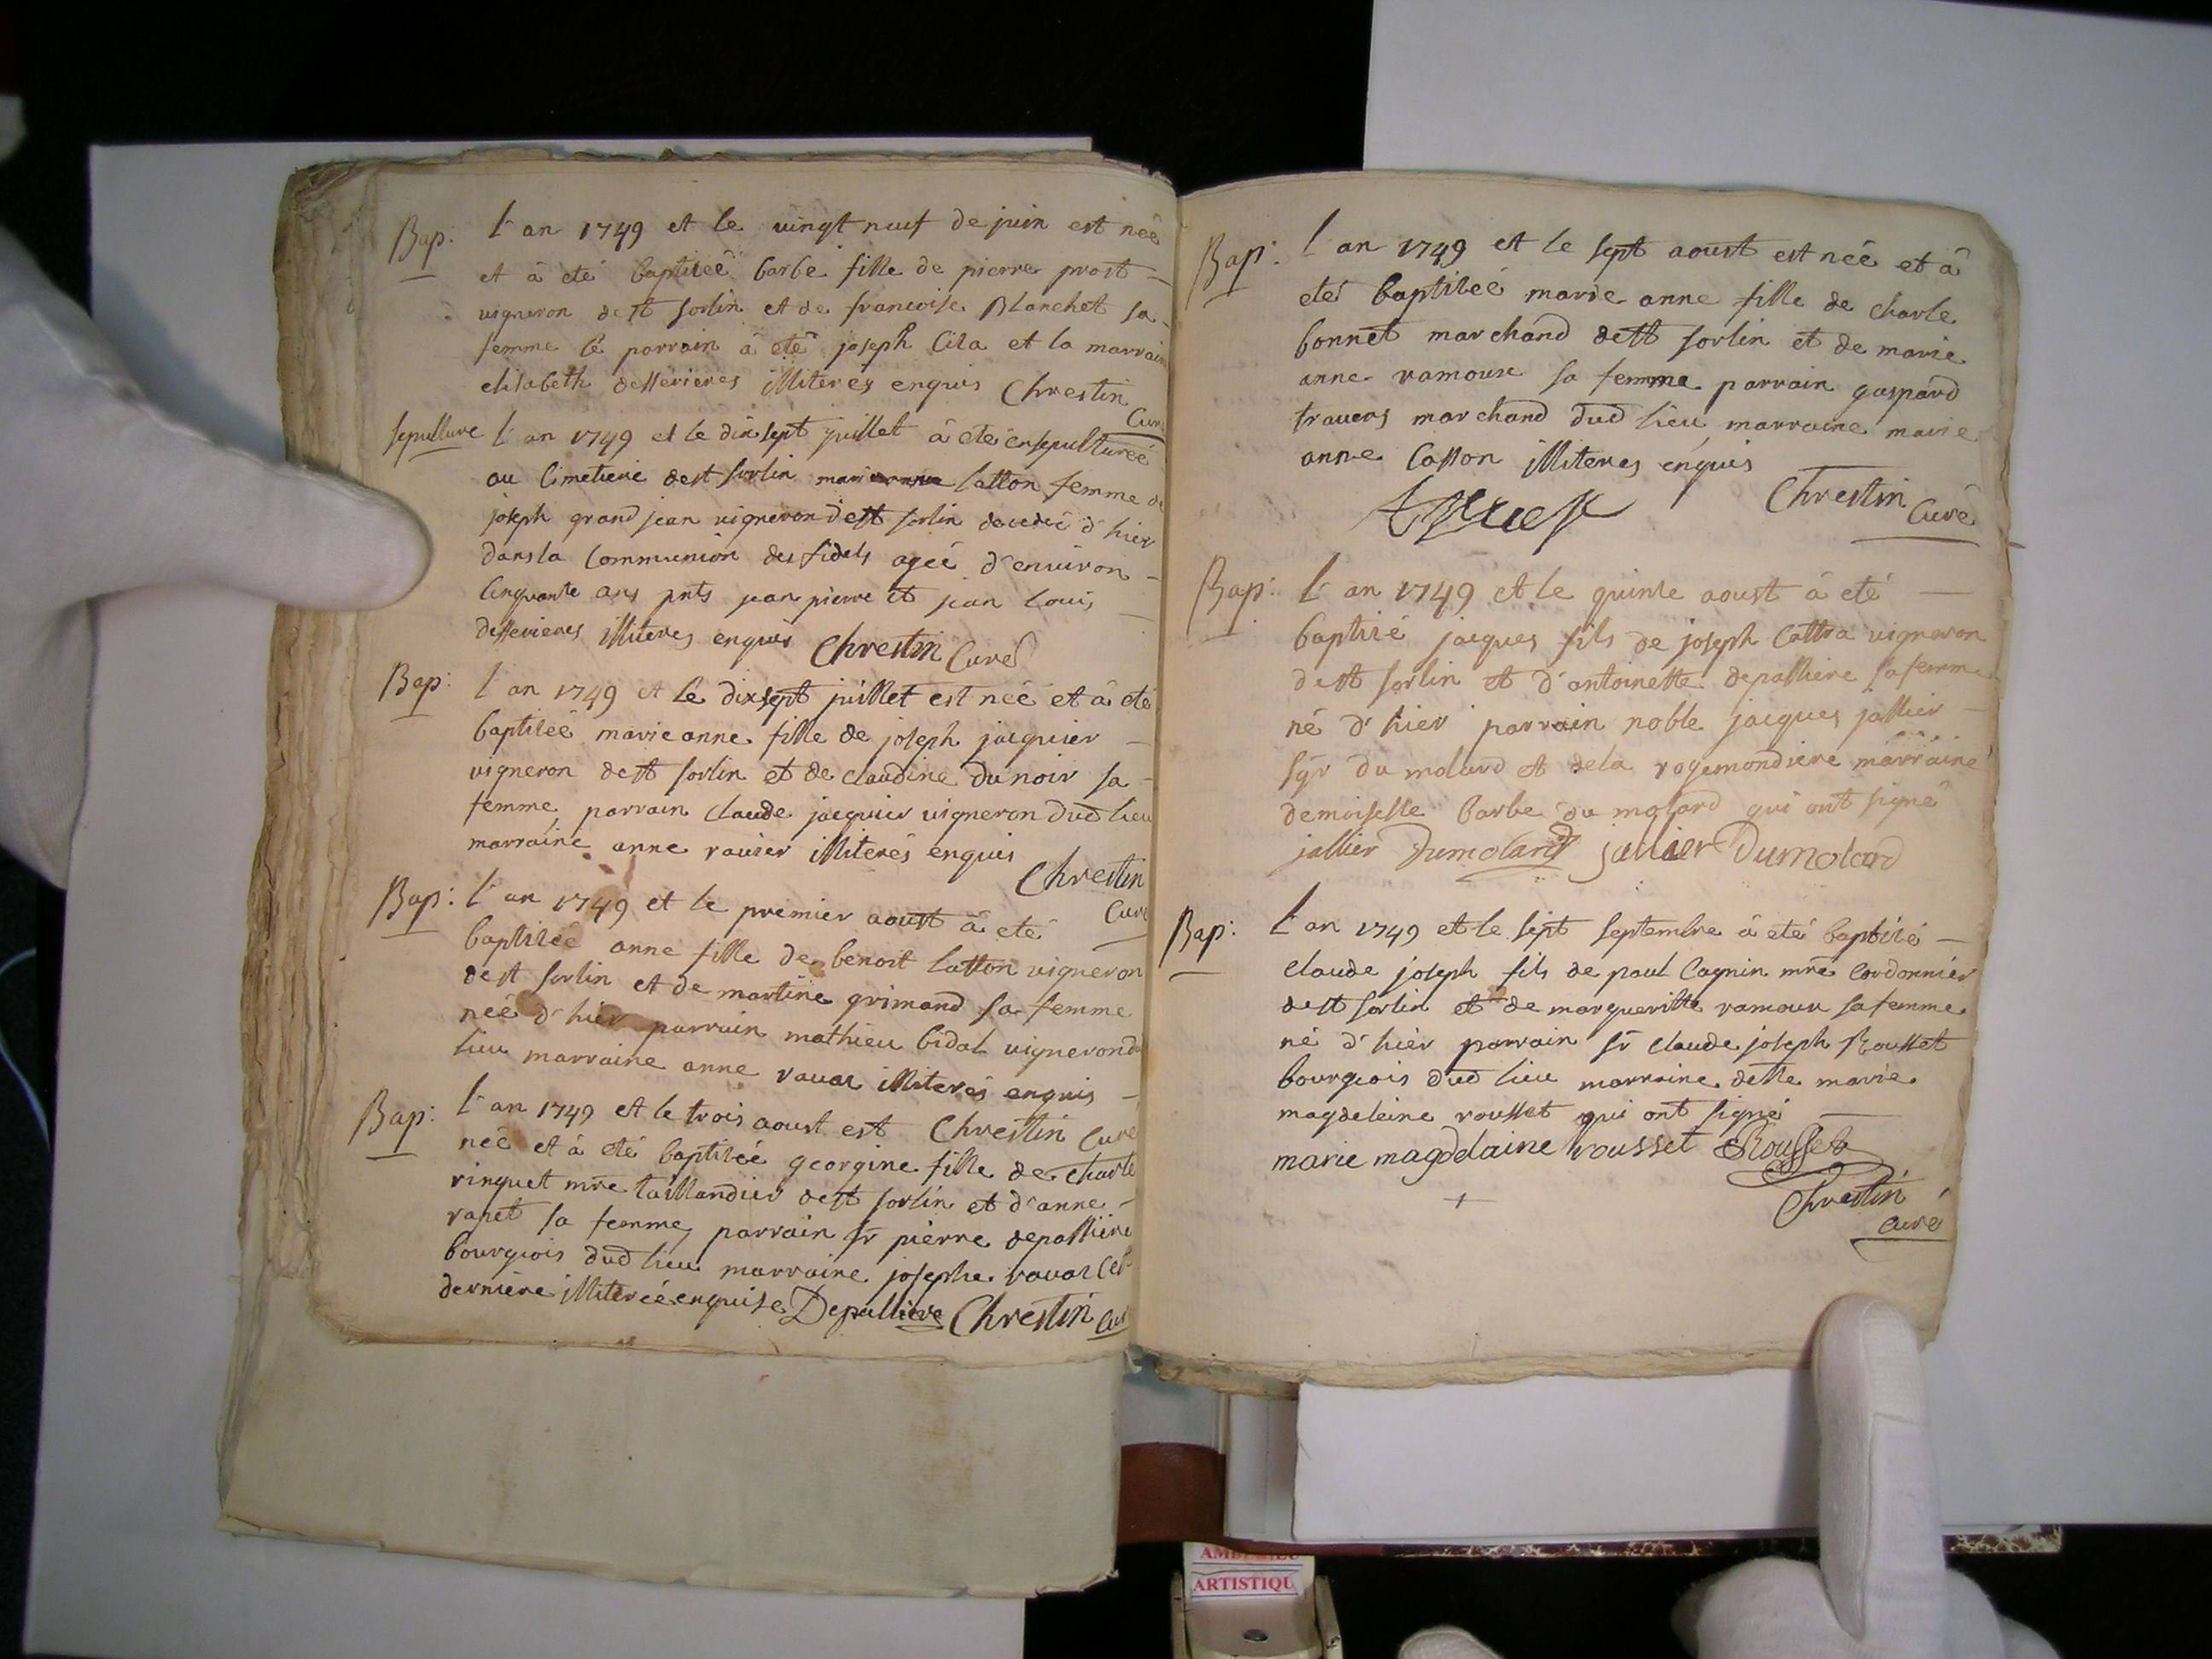 Bap: l'an 1749 et le vingt neuf de juin est neé
et à eté baptiseé barbe fille de pierre prost
vigneron de st sorlin et de francoise Blanchet sa
femme le parrain à eté joseph Cila et la marraine
elisabeth desserieres illiterés enquis Chrestin
Curé
sepulture l'an 1749 et le dix sept juillet à eté ensepultureé
au Cimetiere de st sorlin Catton femme de
joseph grand jean vigneron de st sorlin decedeé d'hier
dans la Communion des fidels ageé d'environ
Cinquante ans pnts jean pierre et jean louis
desserieres illiterés enquis Chrestin Curé
Bap: l'an 1749 et le dixsept juillet est neé et à eté
baptiseé marie anne fille de joseph jacquier
vigneron de st sorlin et de claudine dunoir sa
femme, parrain claude jacquier vigneron dud lieu
marraine anne ravier illiterés enquis
Chrestin
Curé
Bap: l'an 1749 et le premier aoust à eté
baptiseé anne fille de benoit Catton vigneron
de st sorlin et de martine grimand sa femme
neé d'hier parrain mathieu bidal vigneron dud
lieu marraine anne ravat illiterés enquis
Chrestin Curé
Bap: l'an 1749 et le trois aoust est
neé et à eté baptiseé georgine fille de charle
rinquet mre taillandier de st sorlin et d'anne
rapet sa femme, parrain sr pierre depalliere
bourgeois dud lieu marraine josephe ravat cet
derniere illitereé enquise Depalliere Chrestin Curé
Bap: l'an 1749 et le sept aoust est neé et à
eté baptiseé marie anne fille de charle
bonnet marchand de st sorlin et de marie
anne ramoux sa femme parrain gaspard
travers marchand dud lieu, marraine marie
anne Catton illiterés enquis
Chrestin Curé
Bap: l'an 1749 et le quinze aoust à eté
baptisé jacques fils de joseph Cottra vigneron
de st sorlin et d'antoinette depalliere sa femme
né d'hier parrain noble jacques jallier
sgr du molard et dela rogemondiere marraine
demoiselle barbe du molard qui ont signé
jallier Dumolard jallier Dumolard
Bap: l'an 1749 et le sept septembre à eté baptisé
claude joseph fils de paul Cagnin mre Cordonnier
de st sorlin et de margueritte ramoux sa femme
né d'hier parrain sr claude joseph Rousset
bourgeois dud lieu marraine delle marie
magdeleine rousset qui ont signé
marie magdelaine rousset Rousset
Chrestin
curé
ARTISTIQU